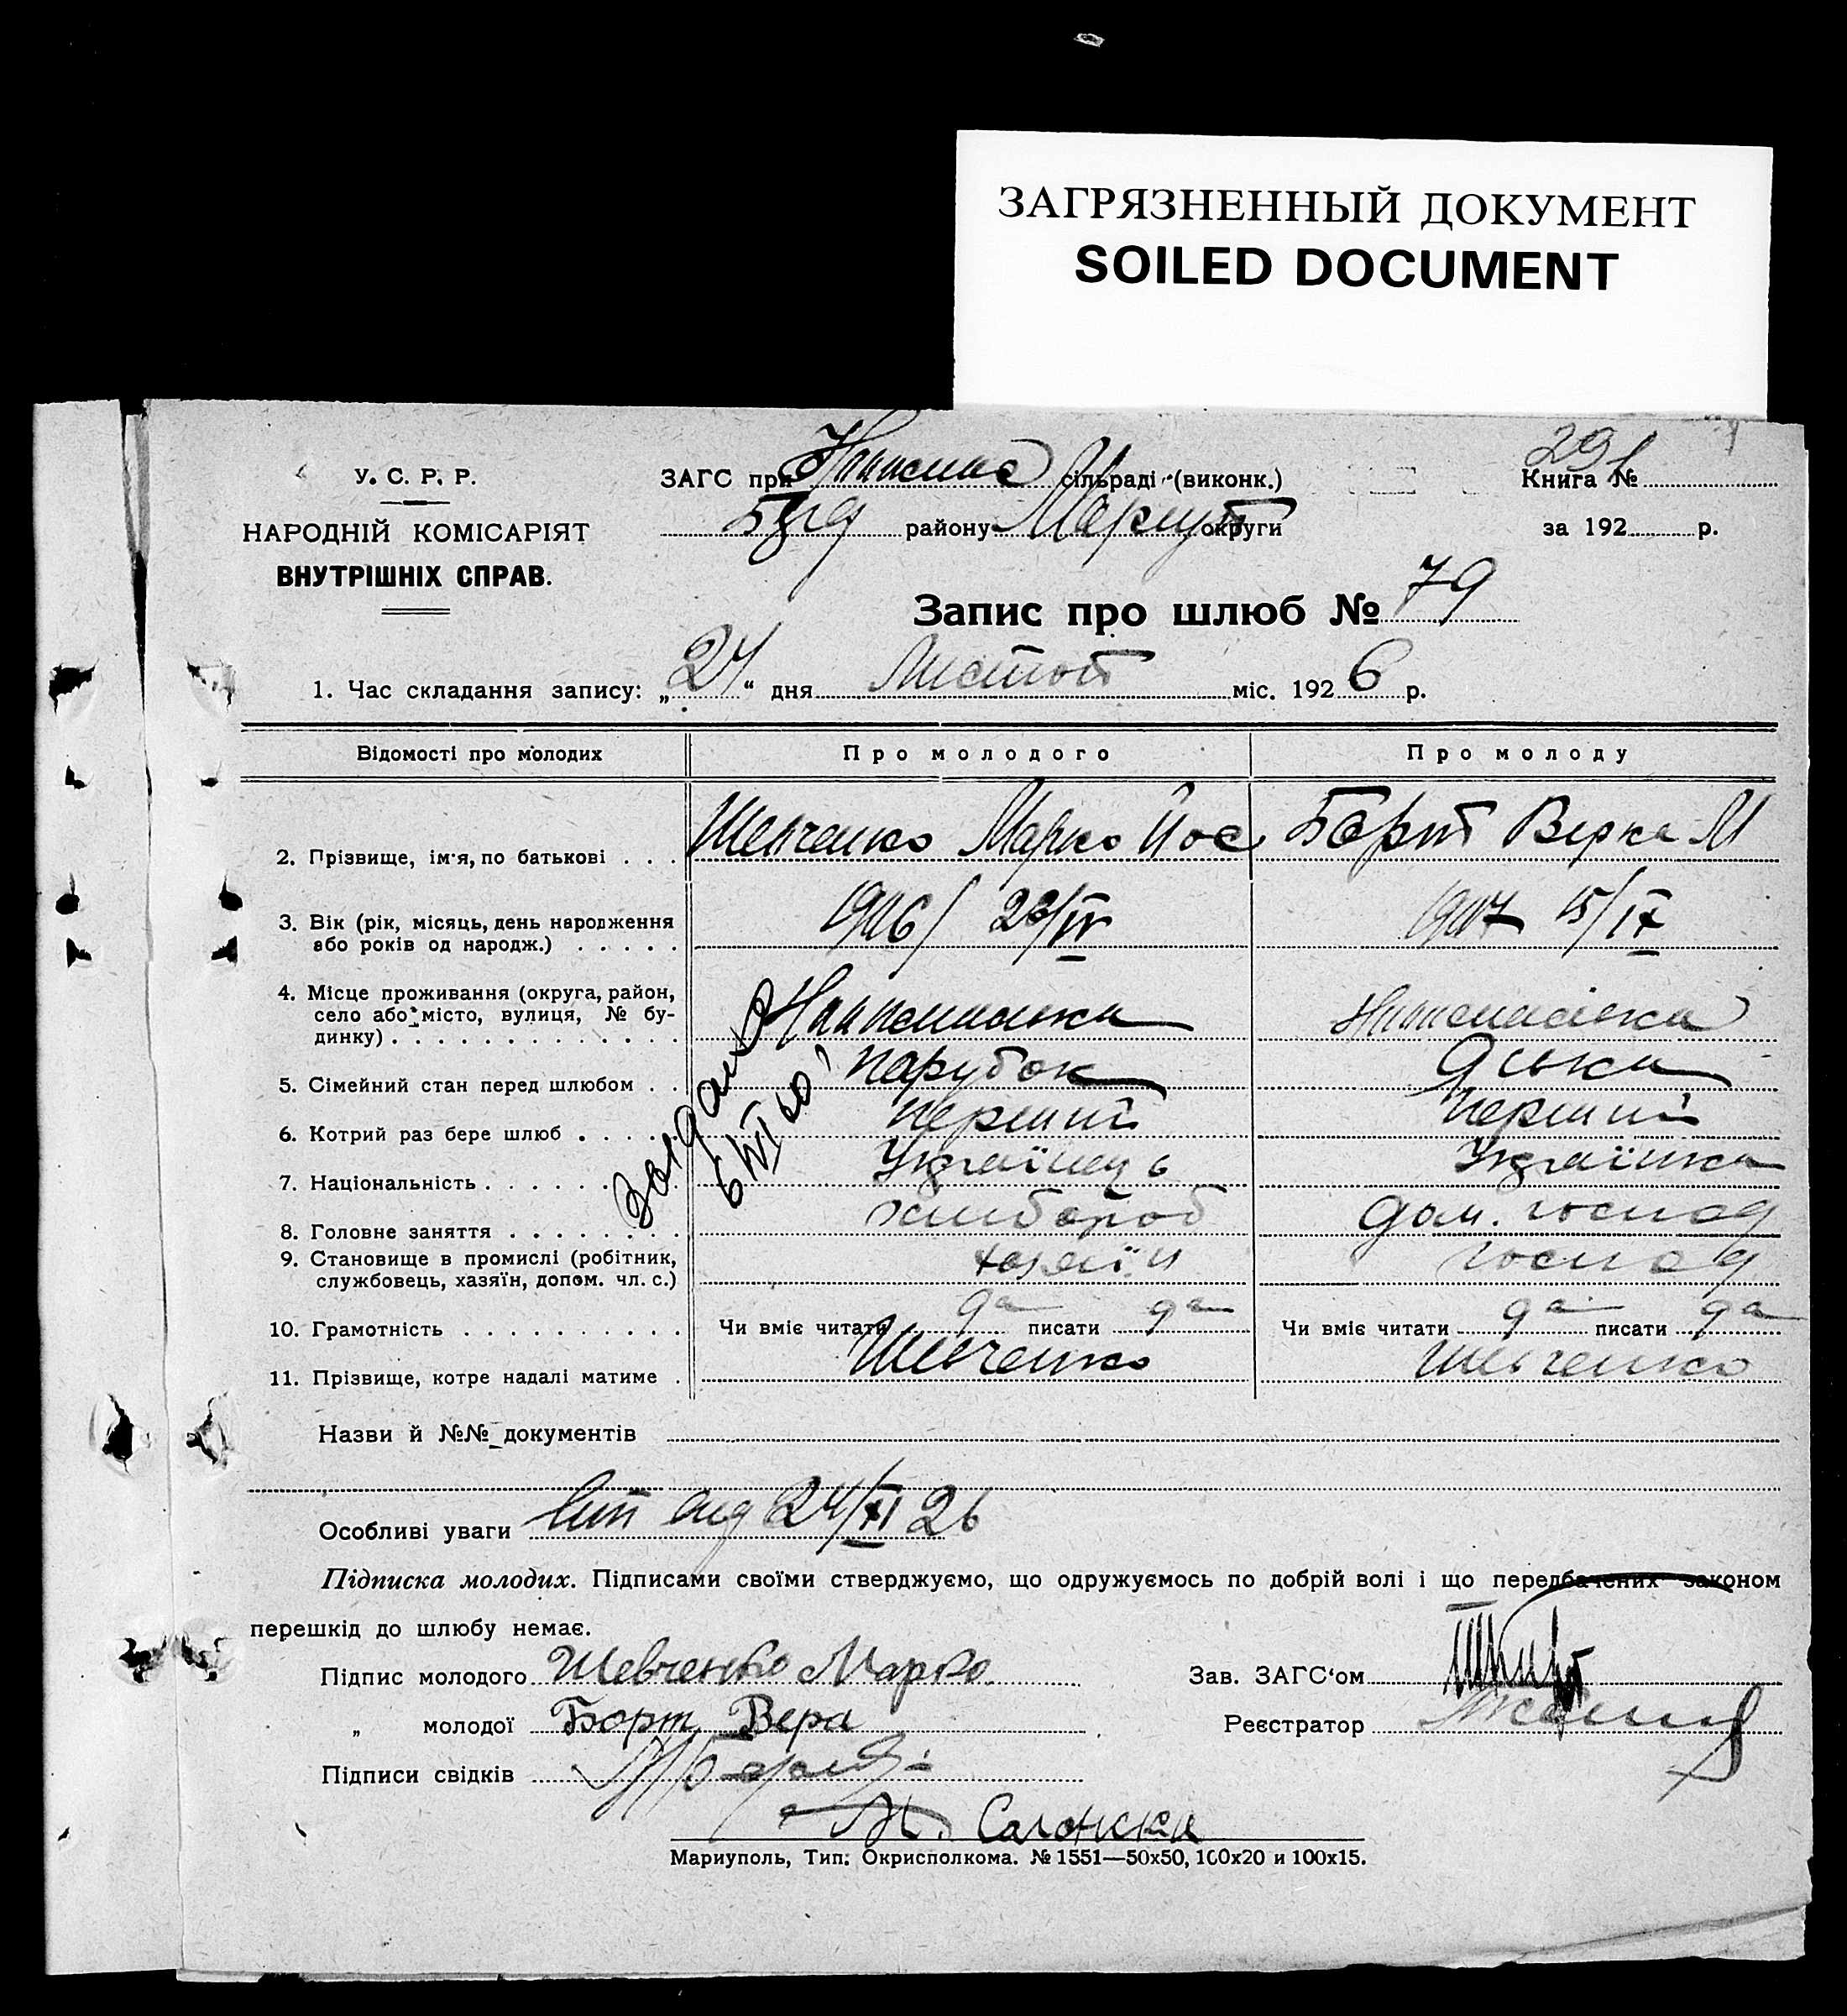 ЗАГРЯЗНЕННЫЙ ДОКУМЕНТ
SOILED DOCUMENT
У. С. Р. Р.
НАРОДНІЙ КОМІСАРІЯТ
ВНУТРІШНІХ СПРАВ.
ЗАГС при сільраді (виконк.)
району округи
Книга №
за 192 р.
Запис про шлюб № 79
1. Час складання запису: „24“ дня Листоп міс. 1926 р.
Відомості про молодих Про молодого Про молоду
2. Прізвище, ім'я, по батькові . . . Шевченко Марко Йос Борт Вера М
3. Вік (рік, місяць, день народження
або років од народж.) . . . . . 1906/ 1907 15/IX
4. Місце проживання (округа, район,
село або місто, вулиця, № бу-
динку) . . . . . . . . . . . . .
5. Сімейний стан перед шлюбом . . парубок дівка
6. Котрий раз бере шлюб . . . . . перший перший
7. Національність . . . . . . . . Українець Українка
8. Головне заняття . . . . . . . . хлібороб дом. господ
9. Становище в промислі (робітник,
службовець, хазяїн, допом. чл. с.) хазяїн господ
10. Грамотність . . . . . . . . . . Чи вміє читати да писати да Чи вміє читати да писати да
11. Прізвище, котре надалі матиме . Шевченко Шевченко
Назви й №№ документів
Особливі уваги 24/XI 26
Підписка молодих. Підписами своїми стверджуємо, що одружуємось по добрій волі і що передбачених законом
перешкід до шлюбу немає.
Підпис молодого Шевченко Марко
Зав. ЗАГС'ом
„ молодої Борт Вера
Реєстратор
Підписи свідків
Мариуполь, Тип: Окрисполкома. № 1551—50x50, 100x20 и 100x15.